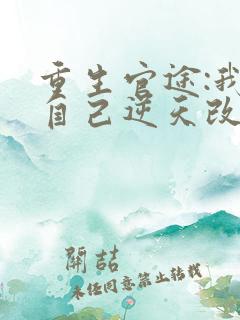 重生官途:我
自己逆天改
開喆
未经同意禁止转载